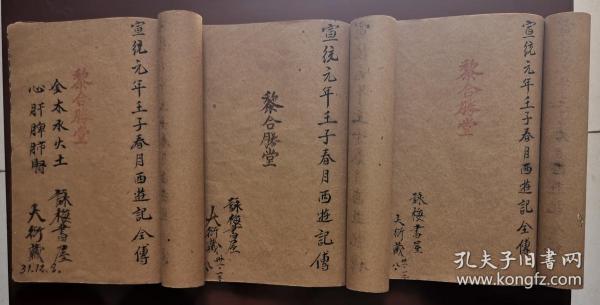 宣统元年壬子春月西遊記全傳
黎合勝堂
金木水火土
心肝脾肺腎
詠梅書屋
天衍藏
31.12.8.
宣统元年壬子春月西遊記傳
黎合勝堂
詠梅書屋
天衍藏
宣统元年壬子春月西遊記全傳
黎合勝堂
詠梅書屋
天衍藏
孔夫子旧书网
kongfz.com